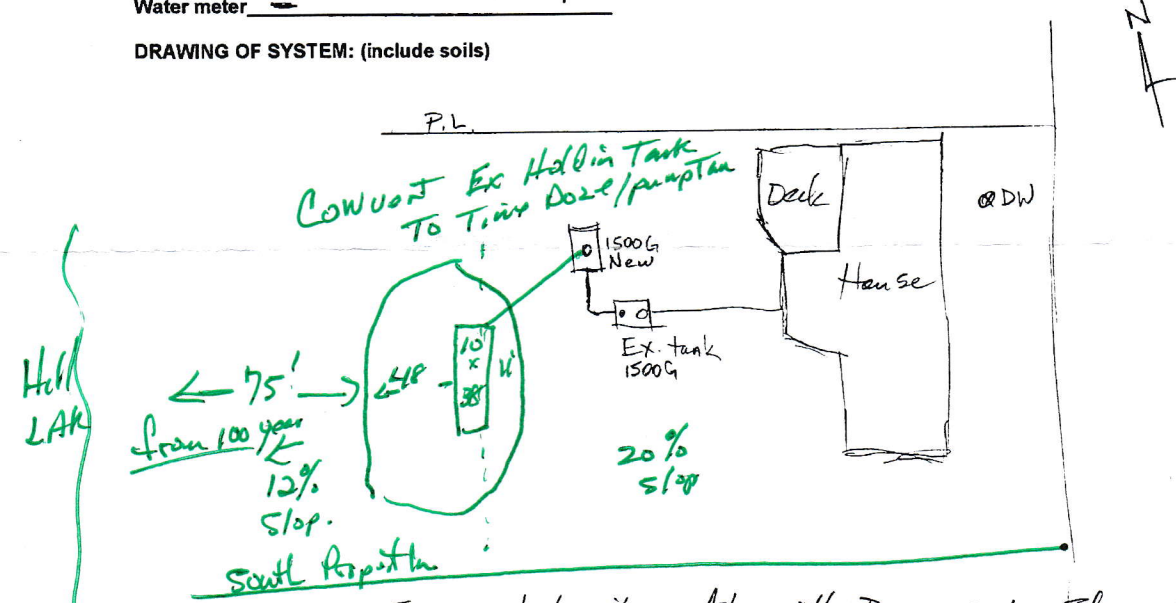 Water meter
DRAWING OF SYSTEM: (include soils)
N
P.L.
Conuert Ex Holdin Tank
To Time Doze/pumpTan
Deck
DW
1500G
New
House
Ex. tank
1500G
10'
x
38'
48
Hill
LAK
75'
from 100 year
12%
Slop.
20%
Slop
South Propertln